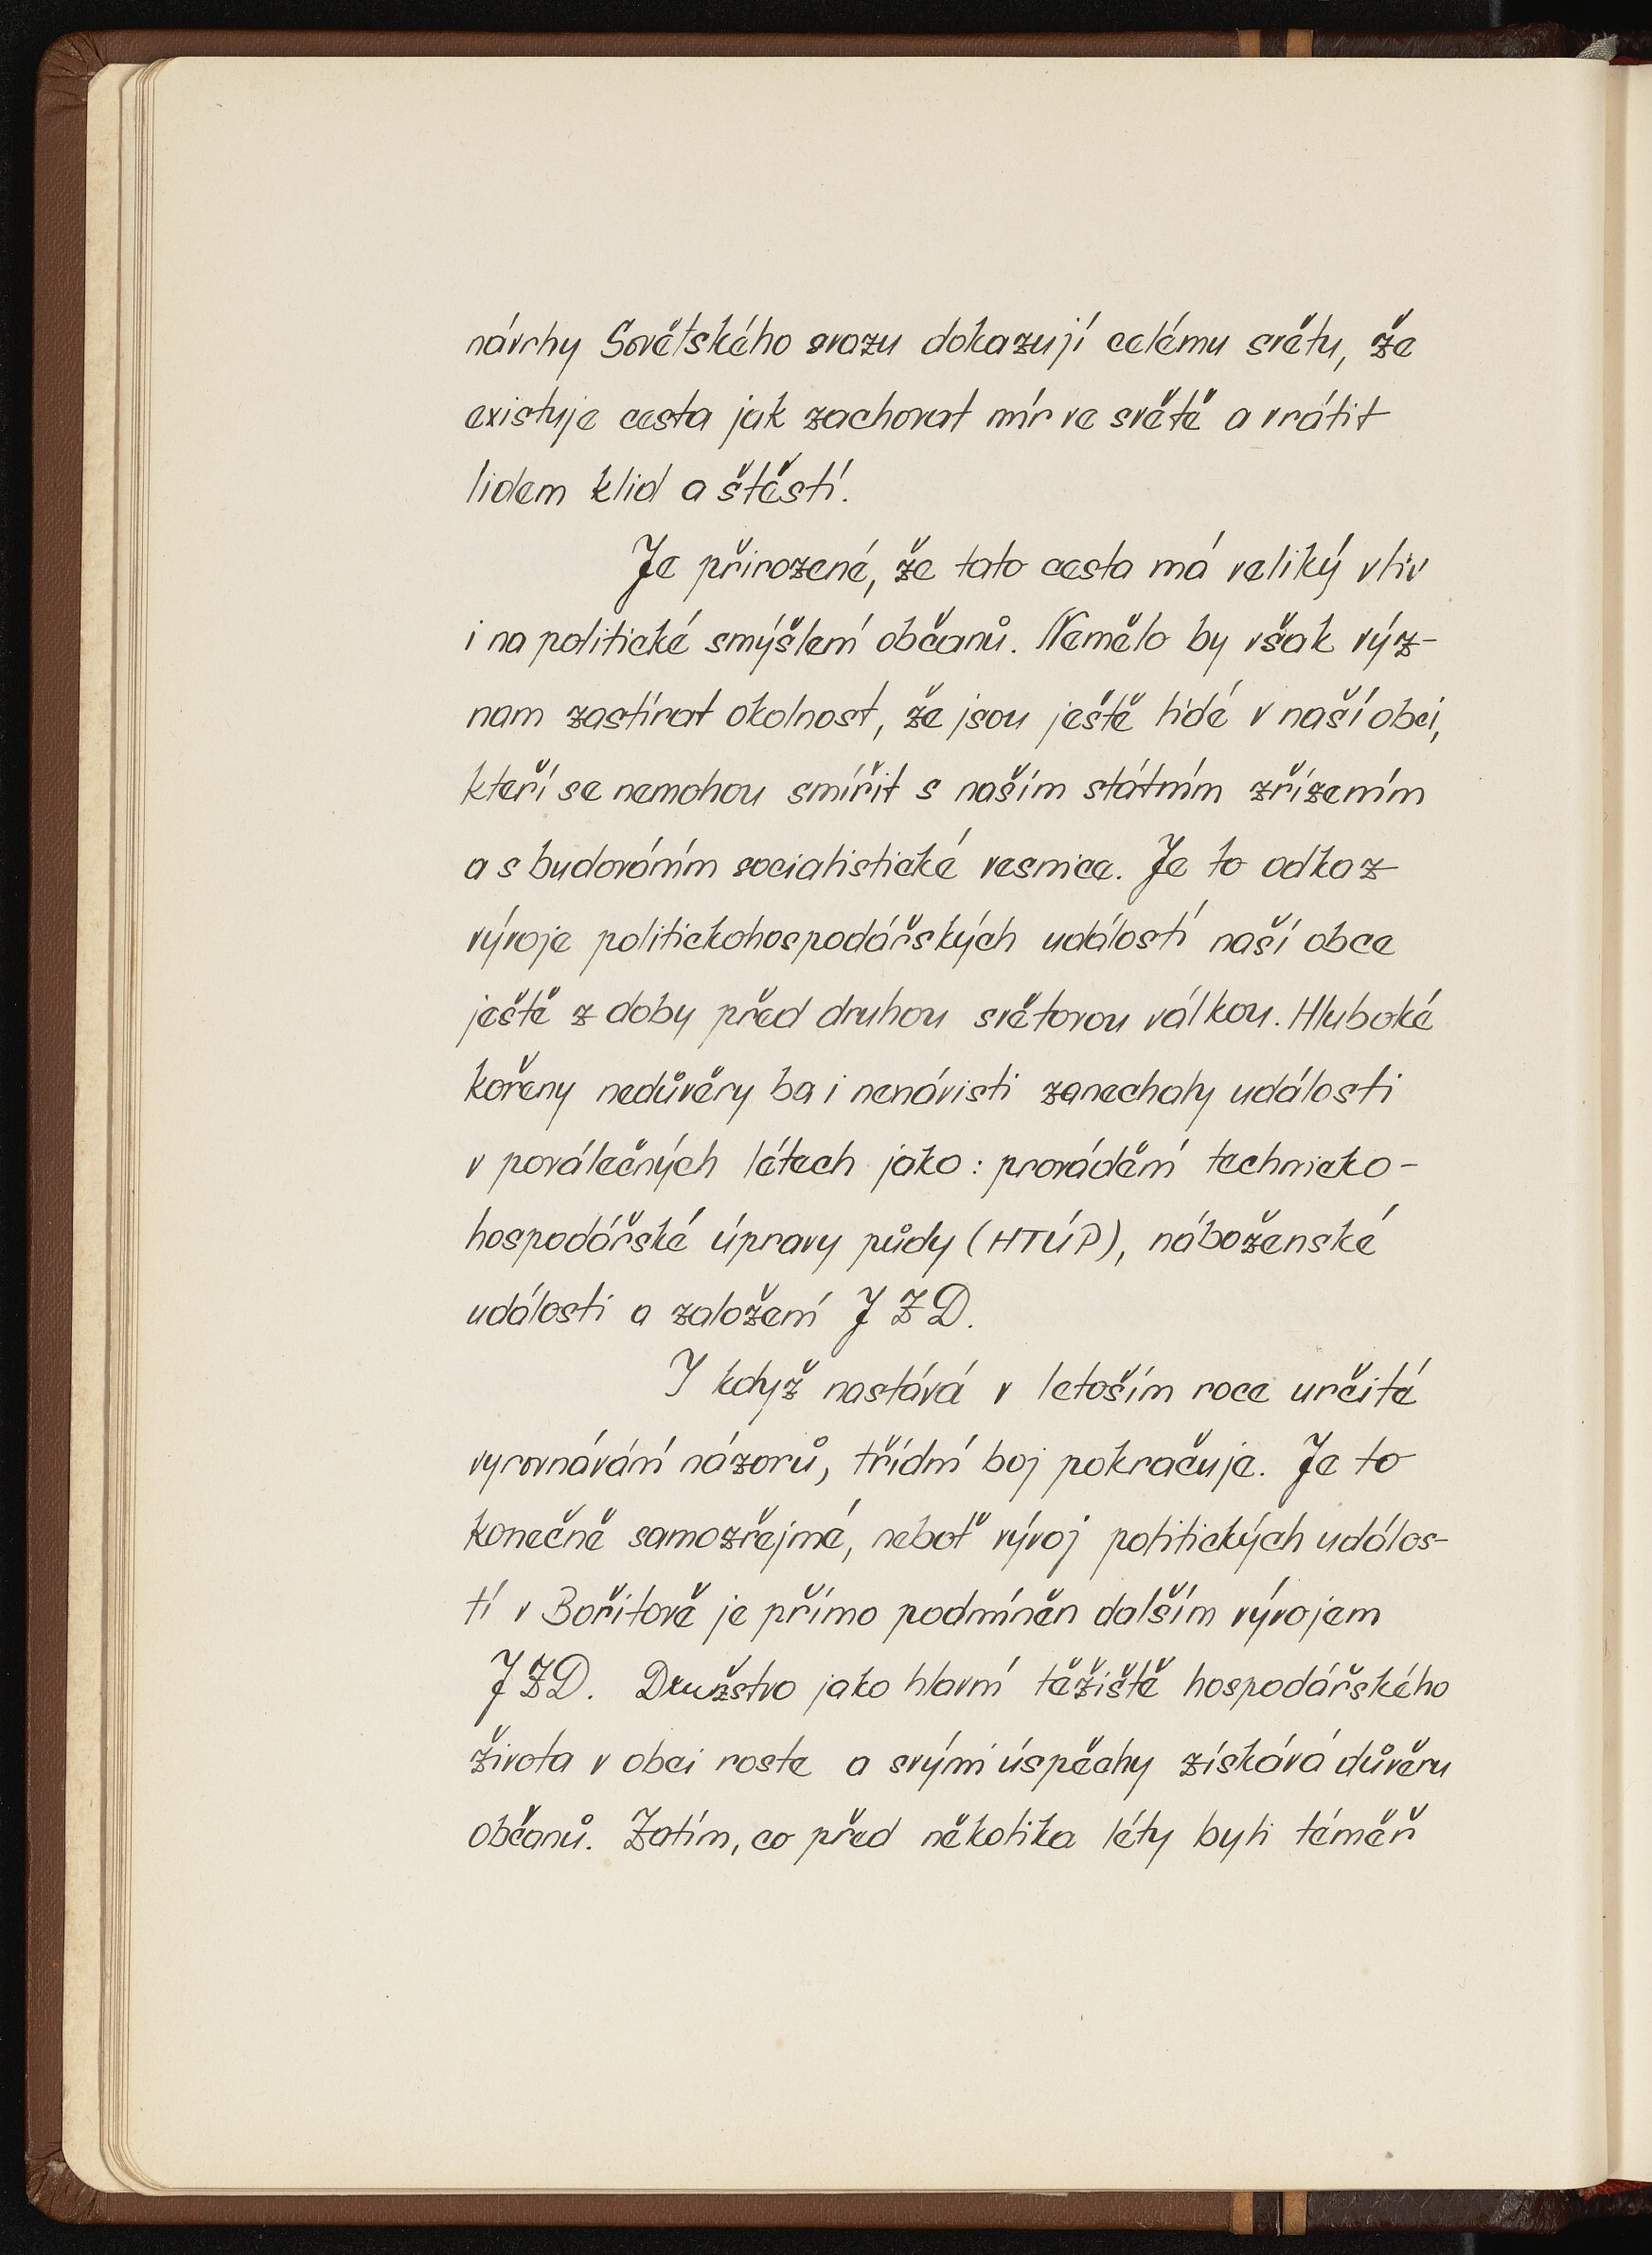 návrhy Sovětského svazu dokazují celému světu, že
existuje cesta jak zachovat mír ve světě a vrátit
lidem klid a štěstí.
Je přirozené, že tato cesta má veliký vliv
i na politické smýšlení občanů. Nemělo by však výz-
nam zastírat okolnost, že jsou ještě lidé v naší obci,
kteří se nemohou smířit s naším státním zřízením
a s budováním socialistické vesnice. Je to odkaz
vývoje politickohospodářských událostí naší obce
ještě z doby před druhou světovou válkou. Hluboké
kořeny nedůvěry ba i nenávisti zanechaly události
v poválečných létech jako: provádění technicko-
hospodářské úpravy půdy (HTÚP), náboženské
události a založení JZD.
I když nastává v letoším roce určité
vyrovnávání názorů, třídní boj pokračuje. Je to
konečně samozřejmé, neboť vývoj politických událos-
tí v Bořitově je přímo podmíněn dalším vývojem
JZD. Družstvo jako hlavní těžiště hospodářského
života v obci roste a svými úspěchy získává důvěru
občanů. Zatím, co před několika léty byli téměř